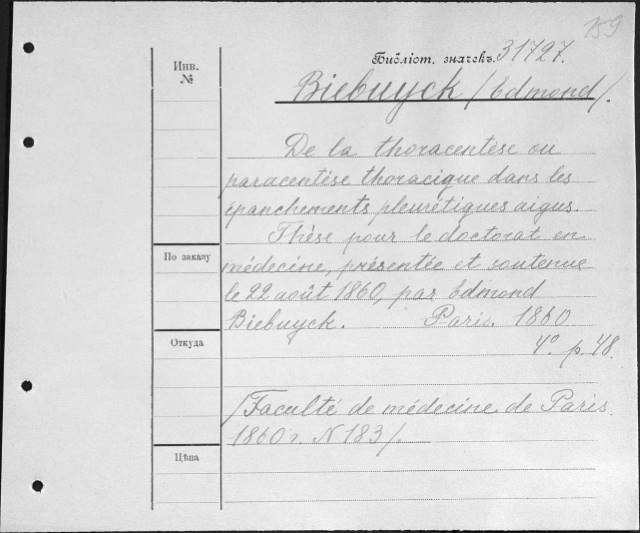 159
Инв.
№
Библіот. значекъ. 31727.
Biebuyck /Edmond/.
De la thoracentèse ou
paracentèse thoracique dans les
épanchements pleurétiques aigus.
Thèse pour le doctorat en
По заказу
médecine, présentée et soutenue
le 22 août 1860, par Edmond
Biebuyck. Paris. 1860.
Откуда
4º. p. 48.
/Faculté de médecine de Paris.
1860 г. N 183/.
Цѣна